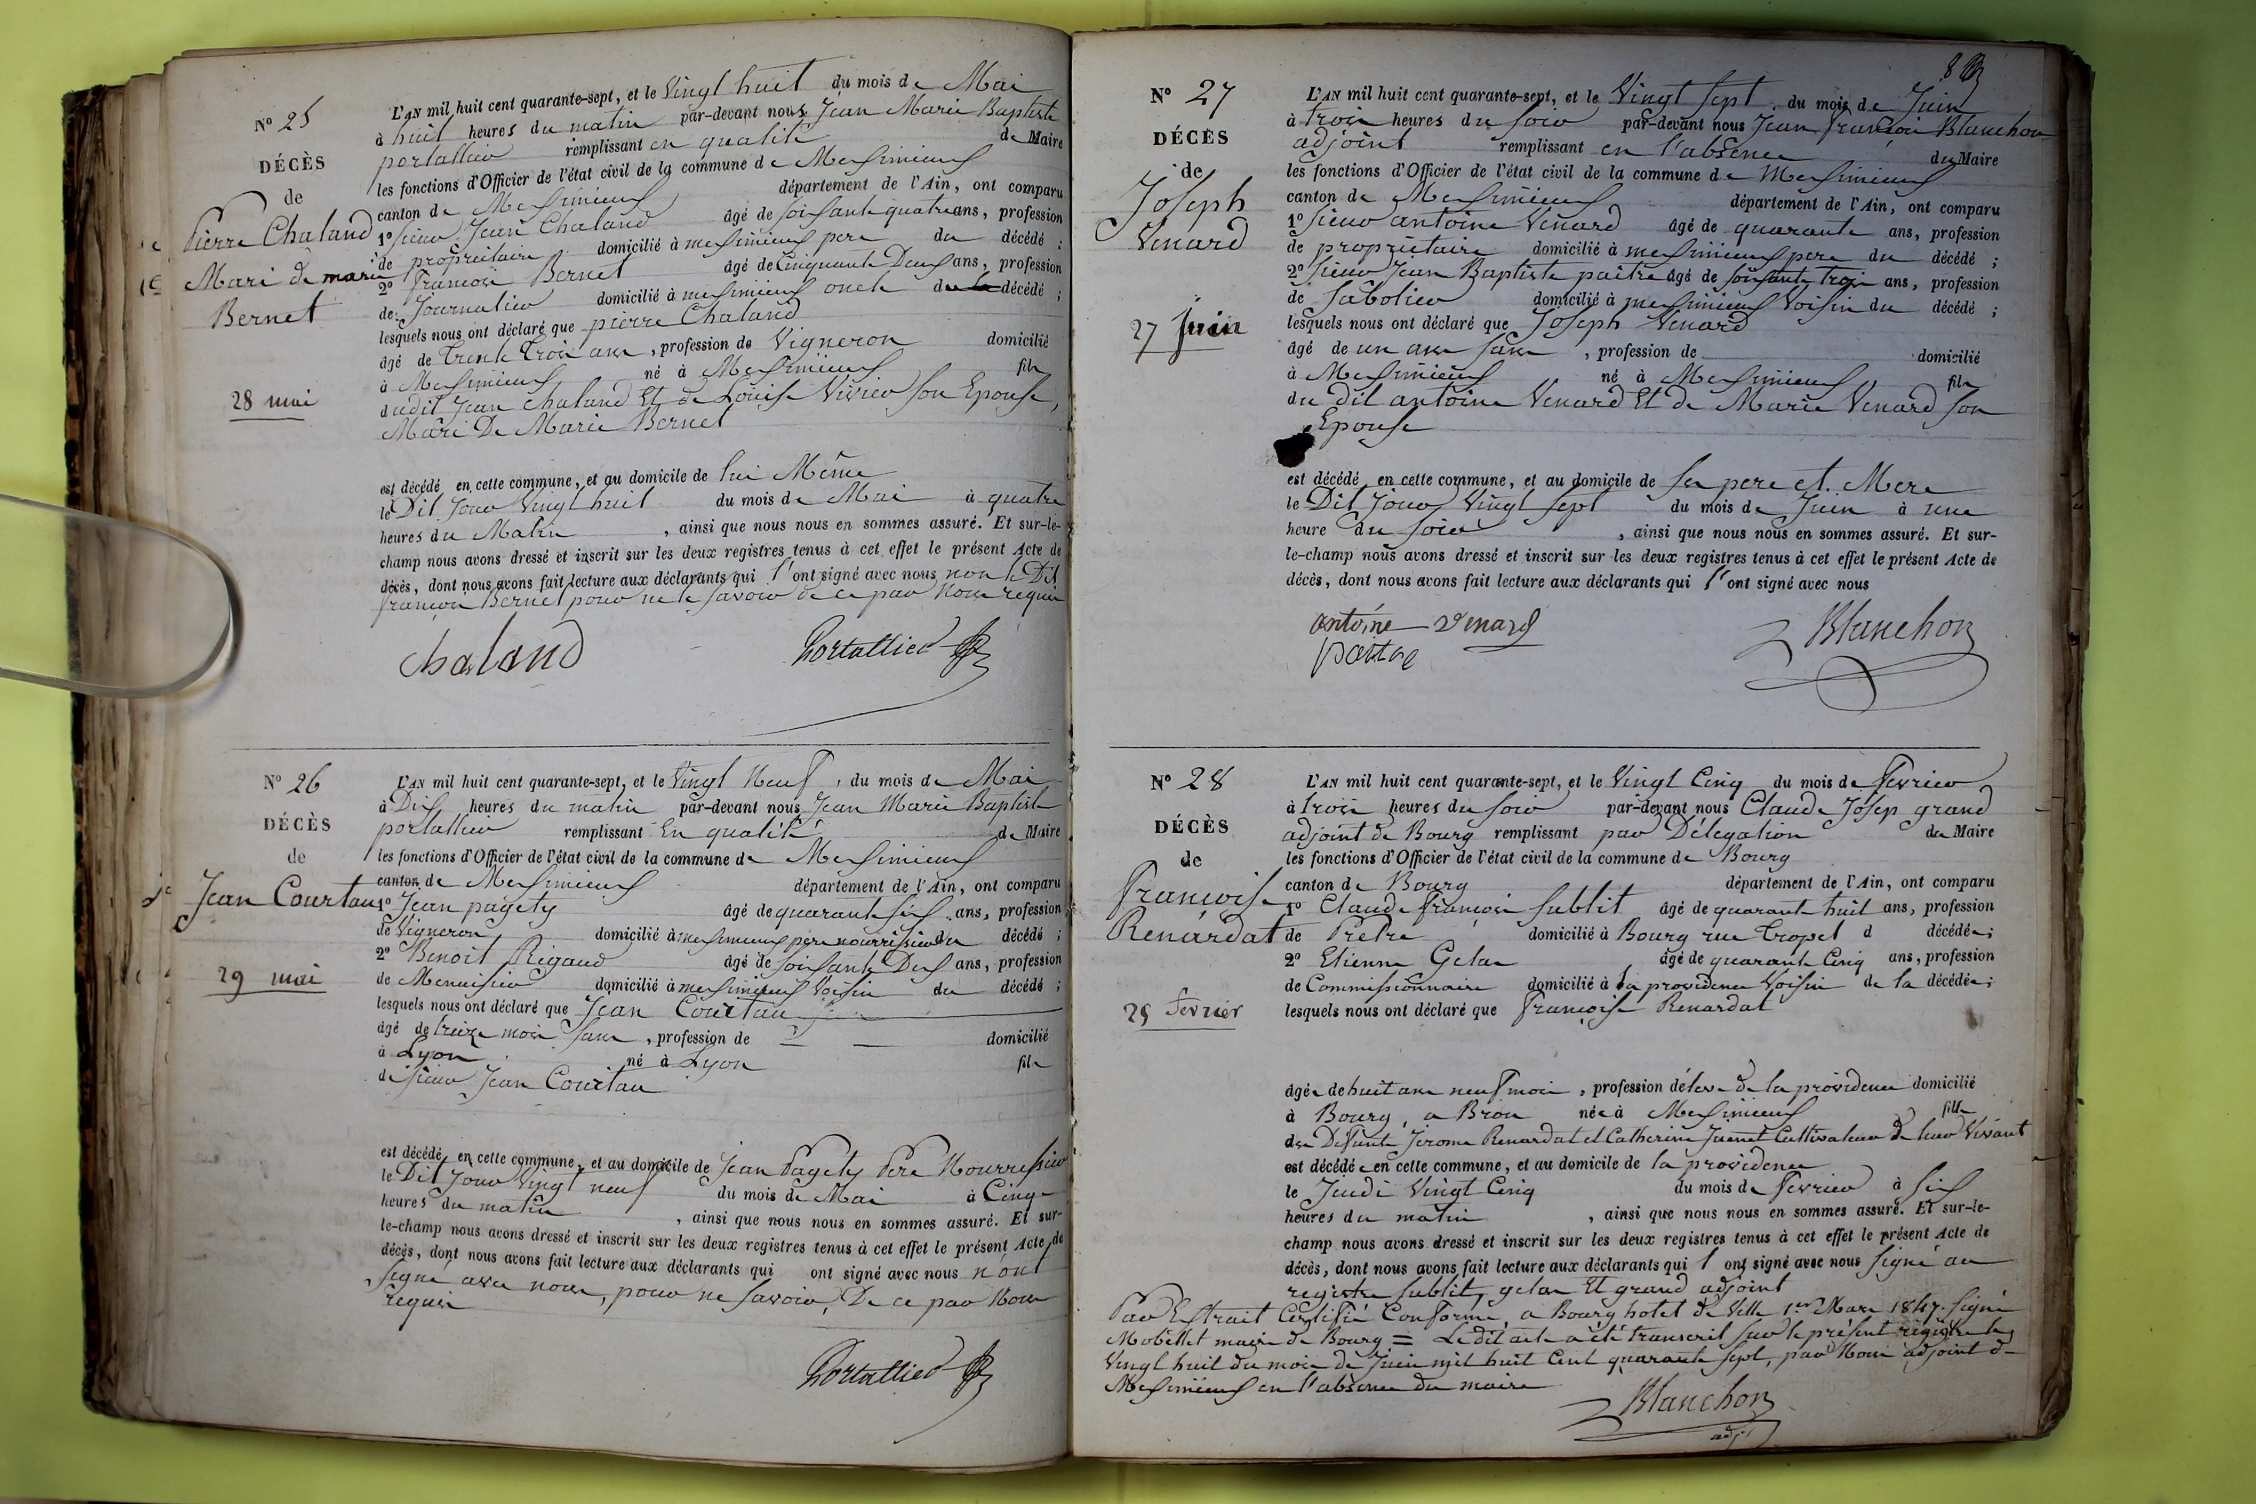 N° 25
DÉCÈS
de
Pierre Chaland
Mari de marie
Bernet
28 mai
L'AN mil huit cent quarante-sept, et le Vingt huit du mois de Mai
à huit heures du matin par-devant nous Jean Marie Baptiste
portallier remplissant en qualité de Maire
les fonctions d'Officier de l'état civil de la commune de Messimieux
canton de Messimieux département de l'Ain, ont comparu
1° sieur Jean Chaland âgé de soixante quatre ans, profession
de propriétaire domicilié à messimieux pere du décédé ;
2° françois Bernet âgé de Cinquante Deux ans, profession
de Journalier domicilié à messimieux oncle du décédé ;
lesquels nous ont déclaré que pierre Chaland
âgé de trente trois ans, profession de Vigneron domicilié
à Messimieux né à Messimieux fils
dudit Jean Chaland Et de Louise Vivier son Epouse,
Mari De Marie Bernet
est décédé en cette commune, et au domicile de lui Même
le Dit Jour Vingt huit du mois de Mai à quatre
heures du Matin, ainsi que nous nous en sommes assuré. Et sur-le-
champ nous avons dressé et inscrit sur les deux registres tenus à cet effet le présent Acte de
décès, dont nous avons fait lecture aux déclarants qui l'ont signé avec nous non le Dit
françois Bernet pour ne le savoir de ce par Nous requis
Chaland Portallier
N° 26
DÉCÈS
de
Jean Courtau
29 mai
L'AN mil huit cent quarante-sept, et le Vingt Neuf du mois de Mai
à Dix heures du matin par-devant nous Jean Marie Baptiste
portallier remplissant En qualité de Maire
les fonctions d'Officier de l'état civil de la commune de Messimieux
canton de Messimieux département de l'Ain, ont comparu
1° Jean pagety âgé de quarante six ans, profession
de Vigneron domicilié à messimieux pere nourrissier du décédé ;
2° Benoit Rigaud âgé de soixante Dix ans, profession
de Menuisier domicilié à messimieux Voisin du décédé ;
lesquels nous ont déclaré que Jean Courtau
âgé de treize mois sans, profession de domicilié
à Lyon né à Lyon fils
de sieur Jean Courtau
est décédé en cette commune, et au domicile de Jean Pagety Pere Nourrissier
le Dit Jour Vingt neuf du mois de Mai à Cinq
heures du matin, ainsi que nous nous en sommes assuré. Et sur-
le-champ nous avons dressé et inscrit sur les deux registres tenus à cet effet le présent Acte de
décès, dont nous avons fait lecture aux déclarants qui ont signé avec nous n'ont
signé avec nous, pour ne savoir, De ce par Nous
requis
Portallier
N° 27
DÉCÈS
de
Joseph
Venard
27 Juin
L'AN mil huit cent quarante-sept, et le Vingt sept du mois de Juin
à trois heures du soir par-devant nous Jean françois Blanchon
adjoint remplissant en l'absence du Maire
les fonctions d'Officier de l'état civil de la commune de Messimieux
canton de Messimieux département de l'Ain, ont comparu
1° sieur antoine Venard âgé de quarante ans, profession
de propriétaire domicilié à messimieux pere du décédé ;
2° sieur Jean Baptiste paître âgé de soixante trois ans, profession
de Sabotier domicilié à messimieux Voisin du décédé ;
lesquels nous ont déclaré que Joseph Venard
âgé de un ans sans, profession de domicilié
à Messimieux né à Messimieux fils
du dit antoine Venard Et de Marie Venard son
Epouse
est décédé en cette commune, et au domicile de ses pere et Mere
le Dit Jour Vingt sept du mois de Juin à une
heure du soir, ainsi que nous nous en sommes assuré. Et sur-
le-champ nous avons dressé et inscrit sur les deux registres tenus à cet effet le présent Acte de
décès, dont nous avons fait lecture aux déclarants qui l'ont signé avec nous
antoine venard Blanchon
paitre
N° 28
DÉCÈS
de
Françoise
Renardat
25 fevrier
L'AN mil huit cent quarante-sept, et le Vingt Cinq du mois de Fevrier
à trois heures du soir par-devant nous Claude Josep grand
adjoint de Bourg remplissant par Délegation du Maire
les fonctions d'Officier de l'état civil de la commune de Bourg
canton de Bourg département de l'Ain, ont comparu
1° Claude françois sublit âgé de quarante huit ans, profession
de Pretre domicilié à Bourg rue tropet d décédée ;
2° Etienne Gelas âgé de quarante Cinq ans, profession
de Commissionnaire domicilié à la providence Voisin de la décédée ;
lesquels nous ont déclaré que françoise Renardat
âgée de huit ans neuf mois, profession d'éleve de la providence domicilié
à Bourg, a Brou née à Messimieux fille
des Défunts Jerome Renardat et Catherine Juenet Cultivateur de leur Vivant
est décédée en cette commune, et au domicile de la providence
le Jeudi Vingt Cinq du mois de Fevrier à six
heures du matin, ainsi que nous nous en sommes assuré. Et sur-le-
champ nous avons dressé et inscrit sur les deux registres tenus à cet effet le présent Acte de
décès, dont nous avons fait lecture aux déclarants qui l ont signé avec nous Signé au
registre sublit, gelas Et grand adjoint
Par Extrait Certifié Conforme, a Bourg hotel de Ville 1er Mars 1847. Signé
maire de Bourg = Le dit acte a été transcrit sur le présent registre le
Vingt huit du mois de Juin mil huit Cent quarante sept, par Nous adjoint de
Messimieux en l'absence du maire
Blanchon
adj